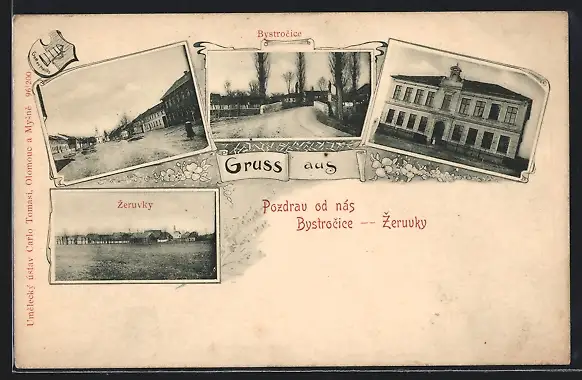 Bystročice
Gruss aus
Žeruvky
Pozdrav od nás
Bystročice — Žeruvky
Umělecký ústav Carlo Tomasi, Olomouc a Myšné 96/200